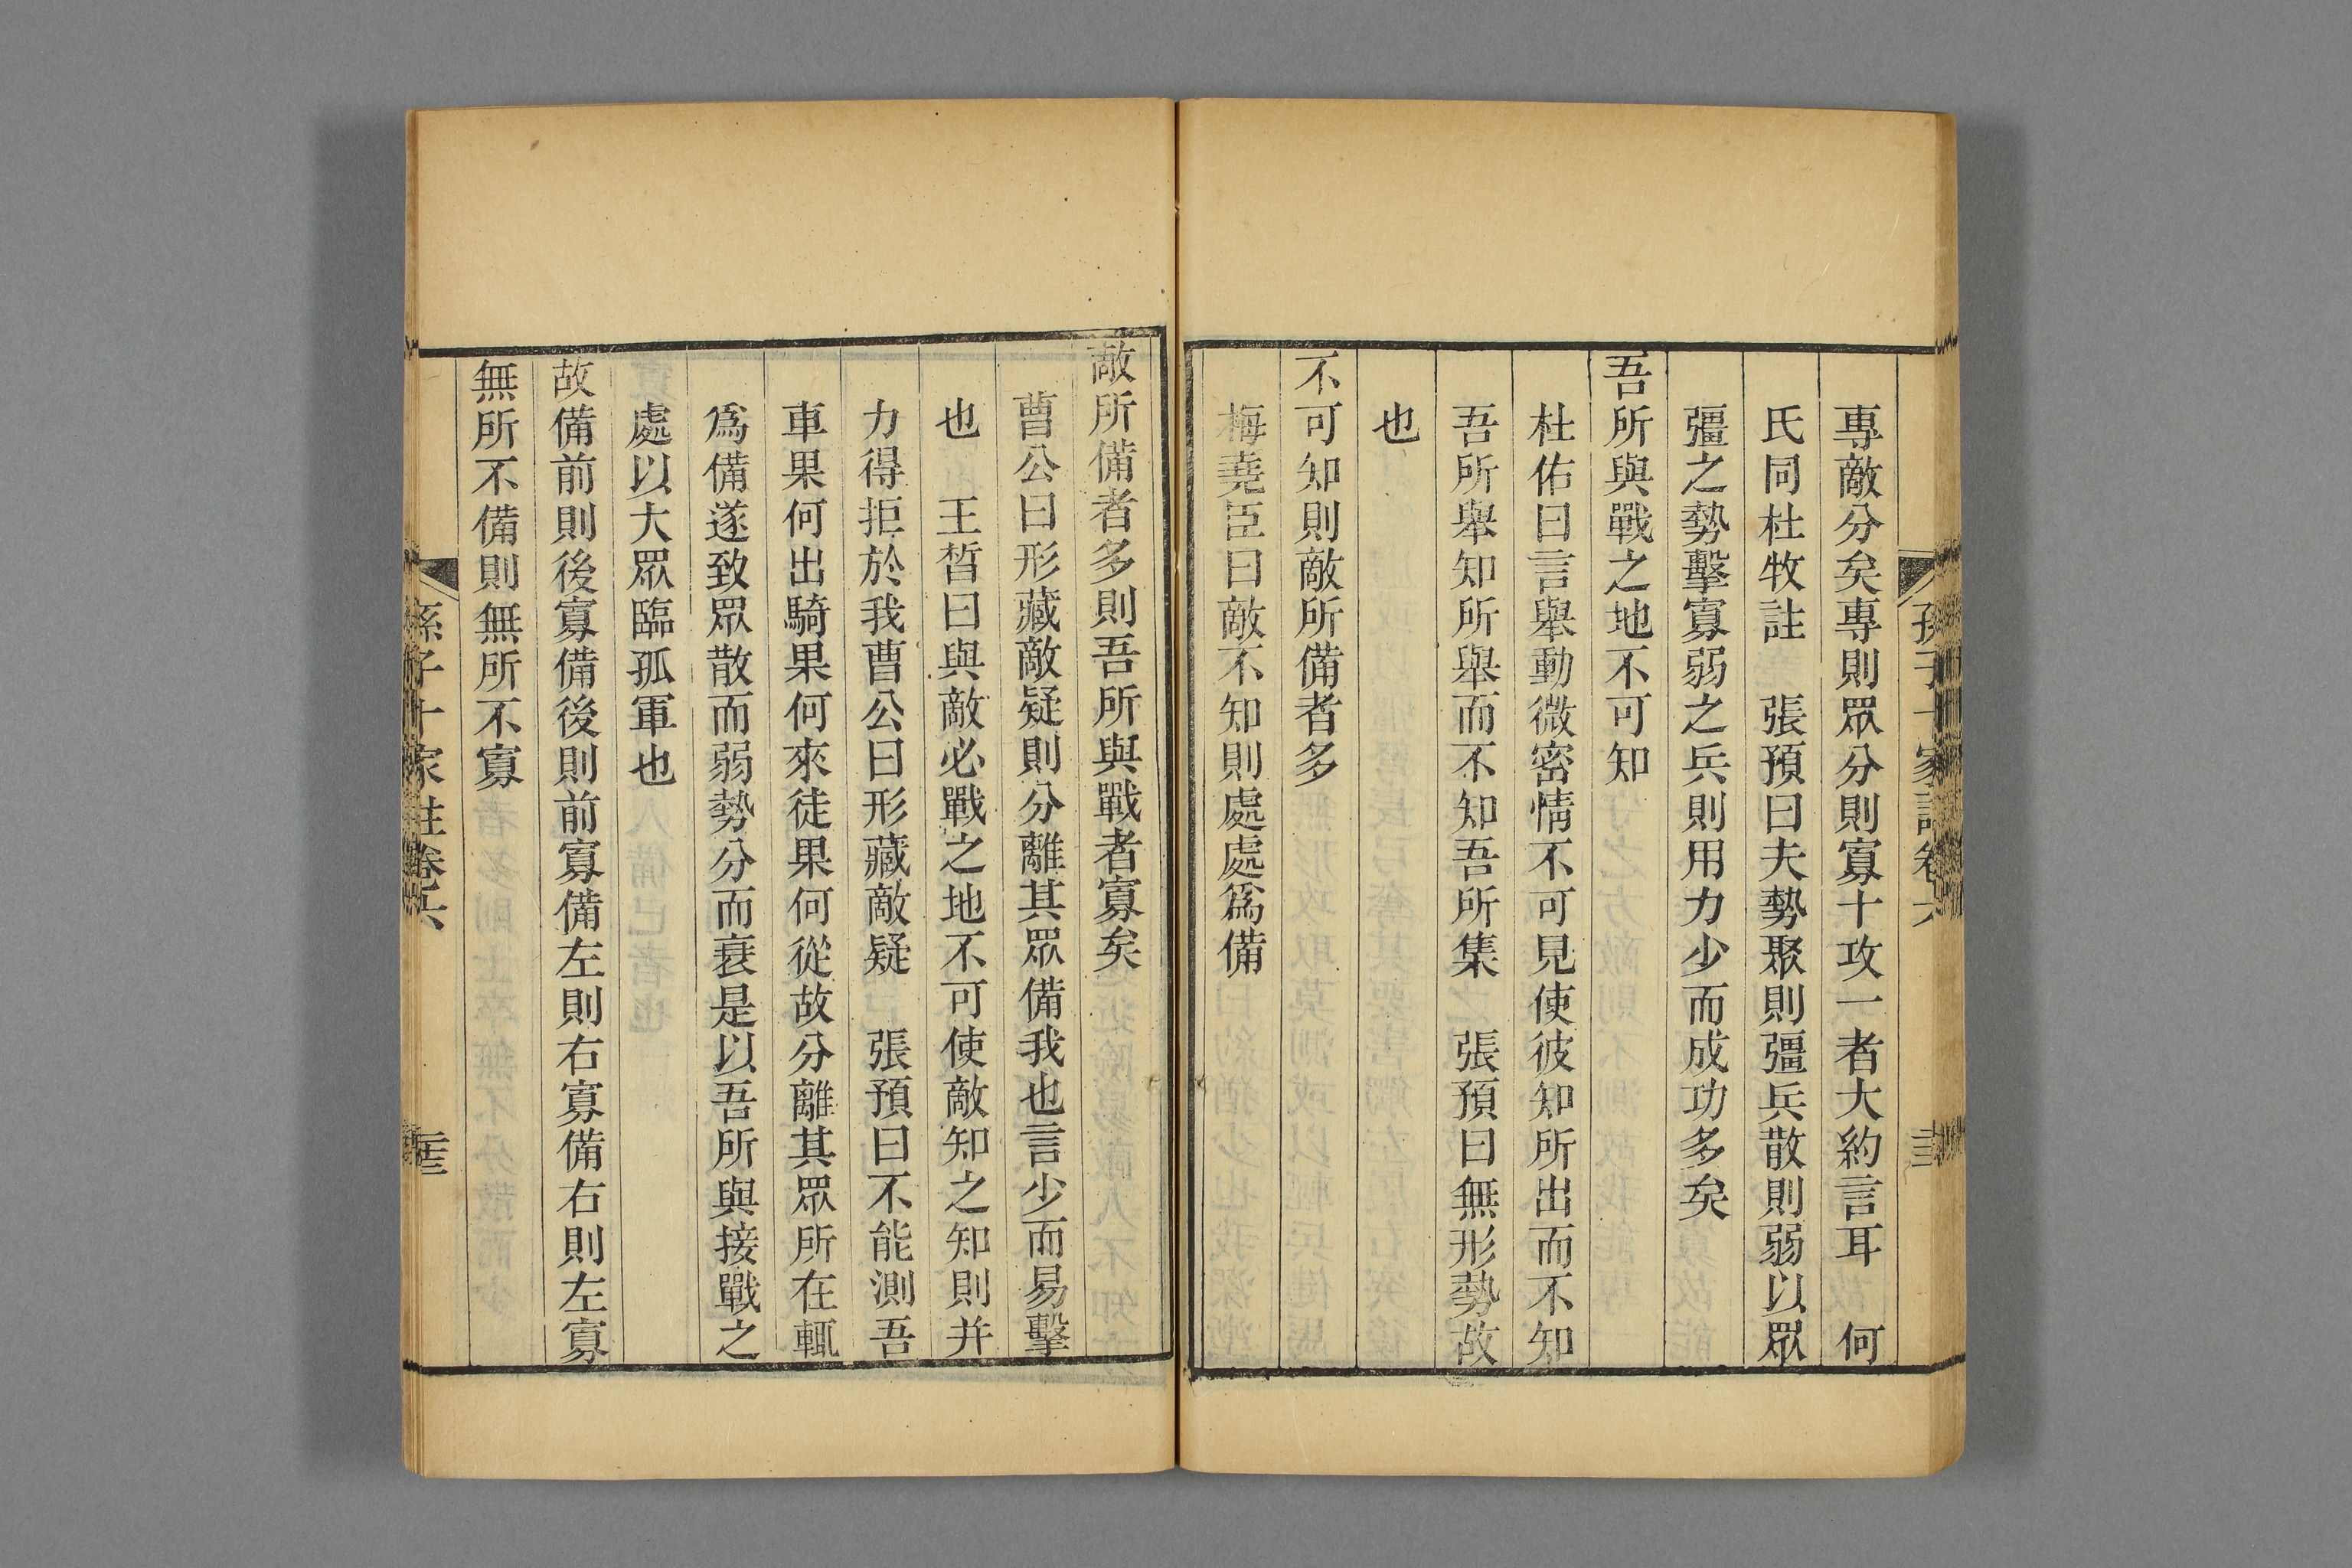 專敵分矣專則眾分則寡十攻一者大約言耳　何
氏同杜牧註　張預曰夫勢聚則彊兵散則弱以眾
彊之勢擊寡弱之兵則用力少而成功多矣
吾所與戰之地不可知
杜佑曰言舉動微密情不可見使彼知所出而不知
吾所舉知所舉而不知吾所集　張預曰無形勢故
也
不可知則敵所備者多
梅堯臣曰敵不知則處處爲備
敵所備者多則吾所與戰者寡矣
曹公曰形藏敵疑則分離其眾備我也言少而易擊
也　王晳曰與敵必戰之地不可使敵知之知則并
力得拒於我曹公曰形藏敵疑　張預曰不能測吾
車果何出騎果何來徒果何從故分離其眾所在輒
爲備遂致眾散而弱勢分而衰是以吾所與接戰之
處以大眾臨孤軍也
故備前則後寡備後則前寡備左則右寡備右則左寡
無所不備則無所不寡
孫子十家註卷六